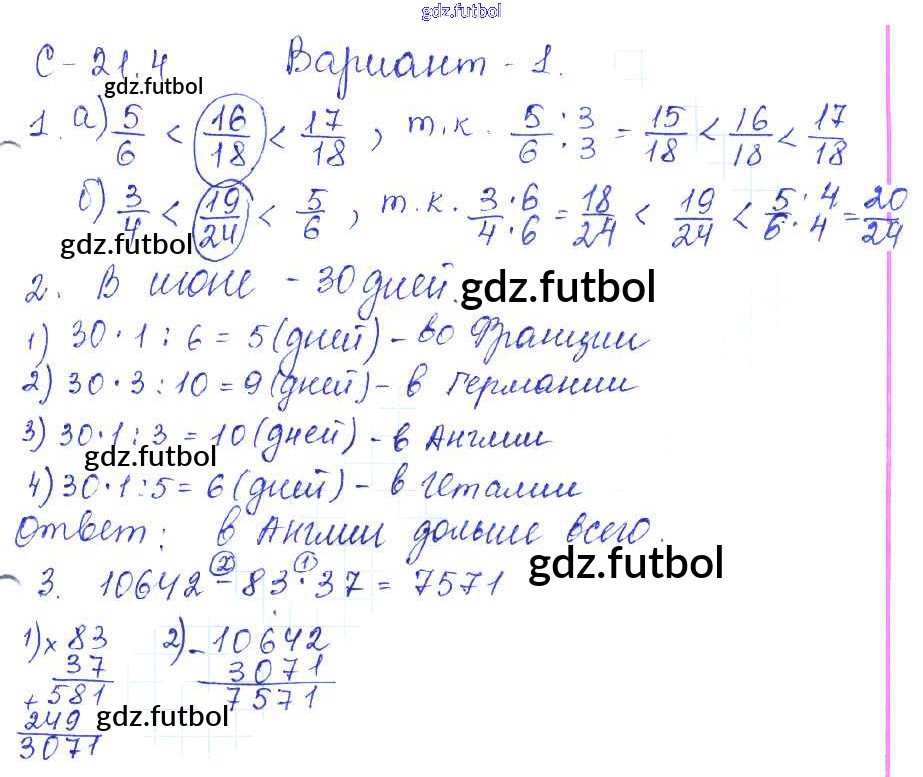 gdz.futbol
С-21.4 Вариант-1.
gdz.futbol
1. а) 5/6 < 16/18 < 17/18, т.к. 5/6 · 3/3 = 15/18 < 16/18 < 17/18
б) 3/4 < 19/24 < 5/6, т.к. 3/4 · 6/6 = 18/24 < 19/24 < 5/6 · 4/4 = 20/24
gdz.futbol
2. В июне - 30 дней. gdz.futbol
1) 30·1:6=5(дней)-во Франции
2) 30·3:10=9(дней)-в Германии
3) 30·1:3=10(дней)-в Англии
gdz.futbol
4) 30·1:5=6(дней)-в Италии
Ответ: в Англии дольше всего.
gdz.futbol
② ①
3. 10642-83·37=7571
1) × 83 2) - 10642
37 3071
+ 581 7571
249 gdz.futbol
3071